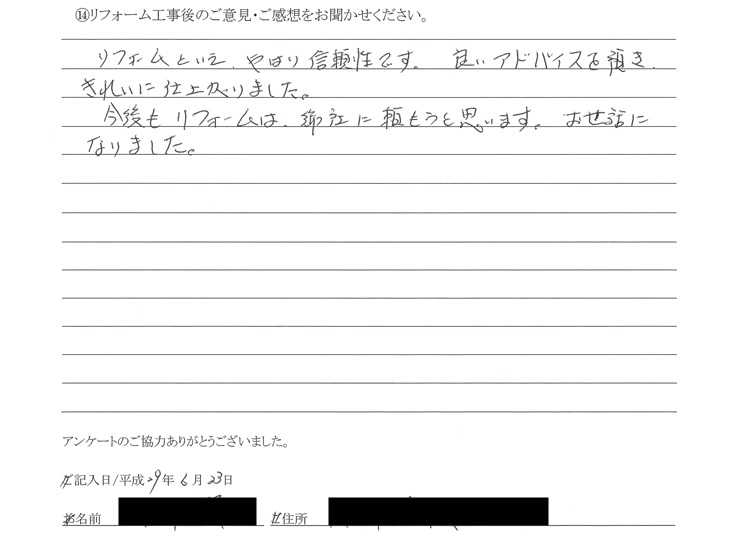 ⑭リフォーム工事後のご意見・ご感想をお聞かせください。
リフォームといえ、やはり信頼性です。 良いアドバイスを頂き、
きれいに仕上がりました。
今後も リフォームは、 に 頼もうと思います。 お世話に
なりました。
アンケートのご協力ありがとうございました。
ご記入日/平成29年 6月 23日
お名前 ご住所